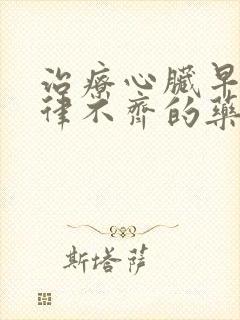 治療心臟早
律不齊的藥
斯塔萨